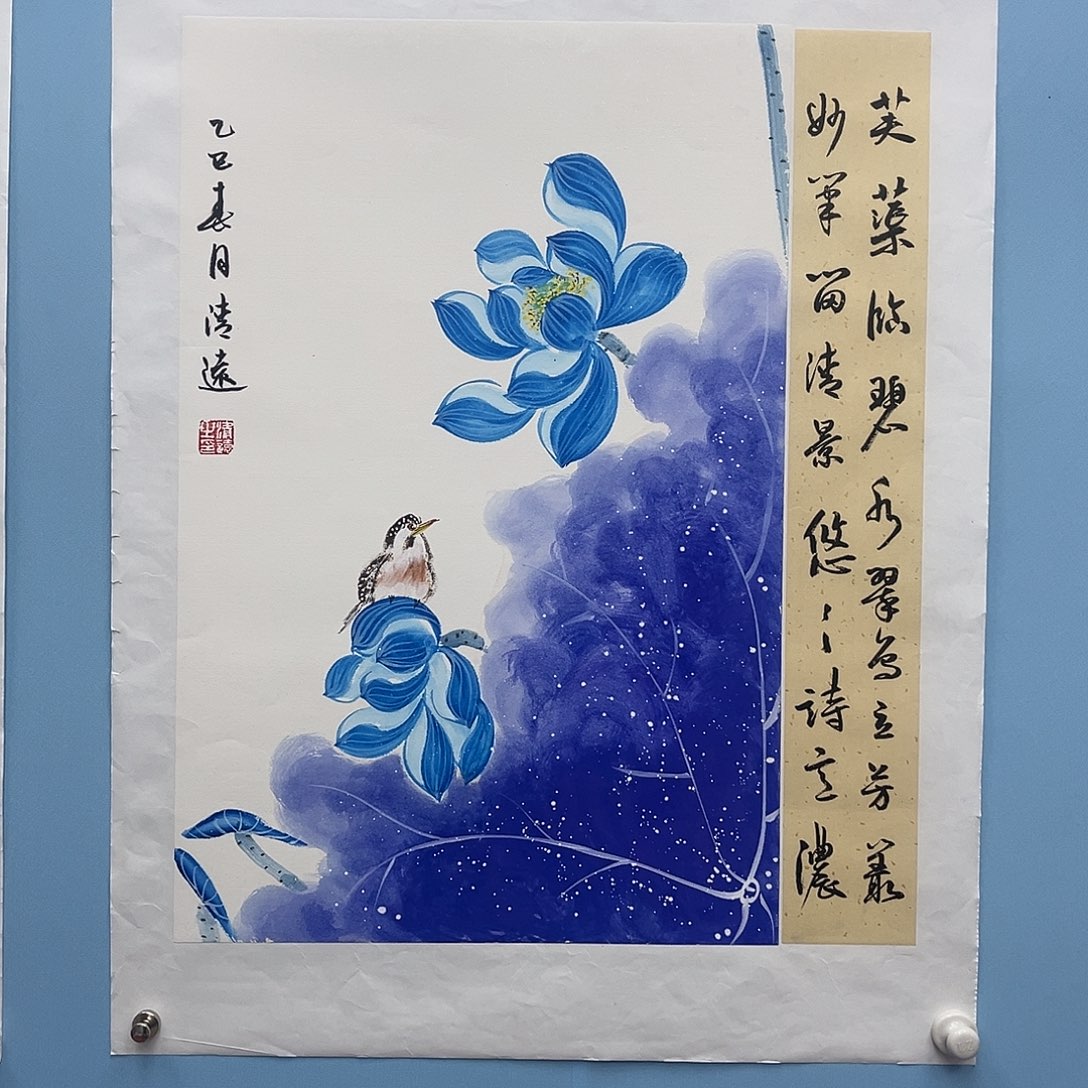 芙蕖临碧水翠鸟立芳丛
妙笔留清景悠悠诗意浓
乙巳春月清远